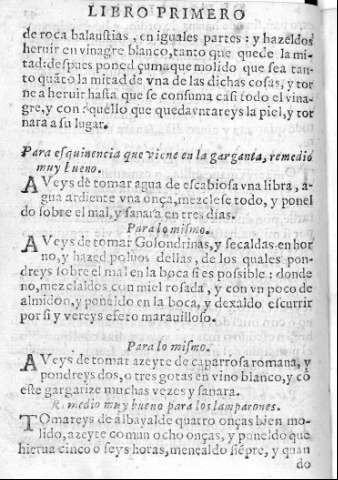 LIBRO PRIMERO
de roca balaustias, en iguales partes: y hazeldos
heruir en vinagre blanco, tanto que quede la mi-
tad: despues poned çumaque molido que sea tan-
to quãto la mitad de vna de las dichas cosas, y tor
ne a heruir hasta que se consuma casi todo el vina-
gre, y con aquello que queda vntareys la piel, y tor
nara a su lugar.
Para esquinencia que viene en la garganta, remedio
muy bueno.
AVeys de tomar agua de escabiosa vna libra, a-
gua ardiente vna onça, mezclese todo, y ponel
do sobre el mal, y sanara en tres dias.
Para lo mismo.
AVeys de tomar Golondrinas, y secaldas en hor
no, y hazed poluos dellas, de los quales pon-
dreys sobre el mal en la boca si es possible: donde
no, mezclaldos con miel rosada, y con vn poco de
almidon, y poneldo en la boca, y dexaldo escurrir
por si y vereys efeto marauilloso.
Para lo mismo.
AVeys de tomar azeyte de caparrosa romana, y
pondreys dos, o tres gotas en vino blanco, y cõ
este gargarize muchas vezes y sanara.
Remedio muy bueno para los lamparones.
TOmareys de albayalde quatro onças bien mo-
lido, azeyte comun ocho onças, y poneldo que
hierua cinco o seys horas, menealdo siẽpre, y quan
do